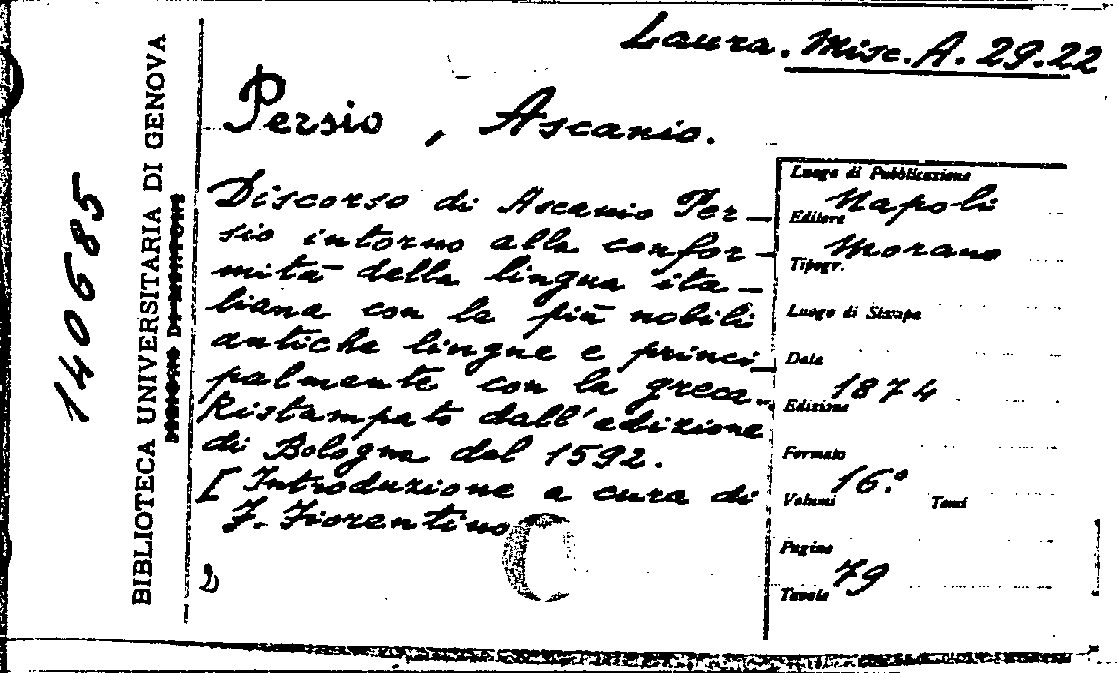 Laura. Misc. A. 29.22
Persio, Ascanio.
Discorso di Ascanio Per-
sio intorno alla confor-
mità della lingua ita-
liana con le più nobili
antiche lingue e princi-
palmente con la greca.
Ristampato dall'edizione
di Bologna del 1592.
[Introduzione a cura di
F. Fiorentino
C
Luogo di Pubblicazione
Napoli
Editore
Morano
Tipogr.
Luogo di Stampa
Data
1874
Edizione
Formato
16.º
Volumi Tomi
Pagine
79
Tavole
BIBLIOTECA UNIVERSITARIA DI GENOVA
140685